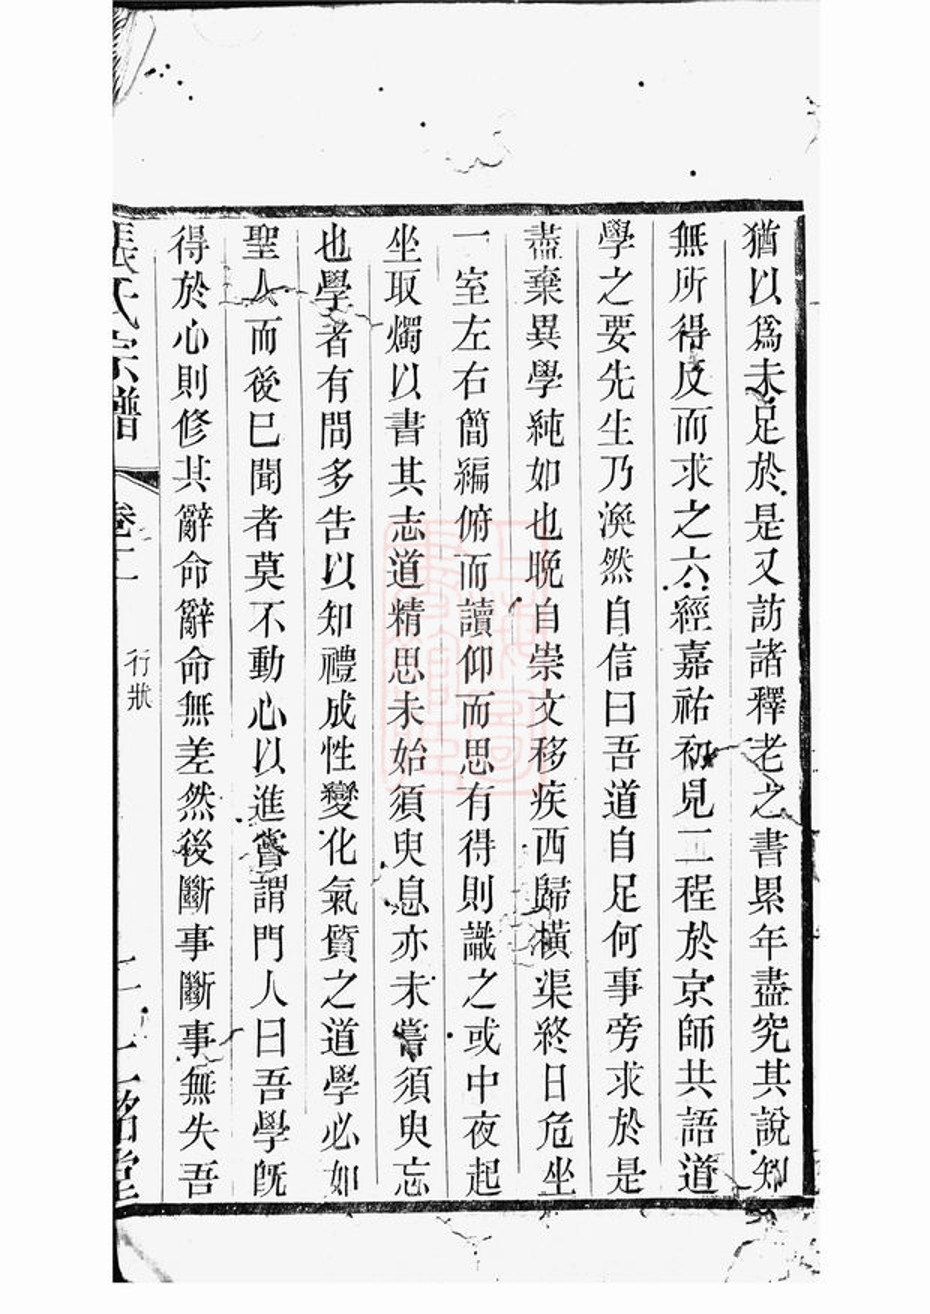 猶以爲未足於是又訪諸釋老之書累年盡究其說知
無所得反而求之六經嘉祐初見二程於京師共語道
學之要先生乃渙然自信曰吾道自足何事旁求於是
盡棄異學純如也晚自崇文移疾西歸橫渠終日危坐
一室左右簡編俯而讀仰而思有得則識之或中夜起
坐取燭以書其志道精思未始須臾息亦未嘗須臾忘
也學者有問多告以知禮成性變化氣質之道學必如
聖人而後巳聞者莫不動心以進嘗謂門人曰吾學旣
得於心則修其辭命辭命無差然後斷事斷事無失吾
張氏宗譜
卷二
行狀
銘堂